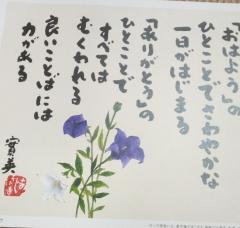 「おはよう」の
ひとことでさわやかな
一日がはじまる
「ありがとう」の
ひとことで
すべては
むくわれる
良いことばには
力がある
實英